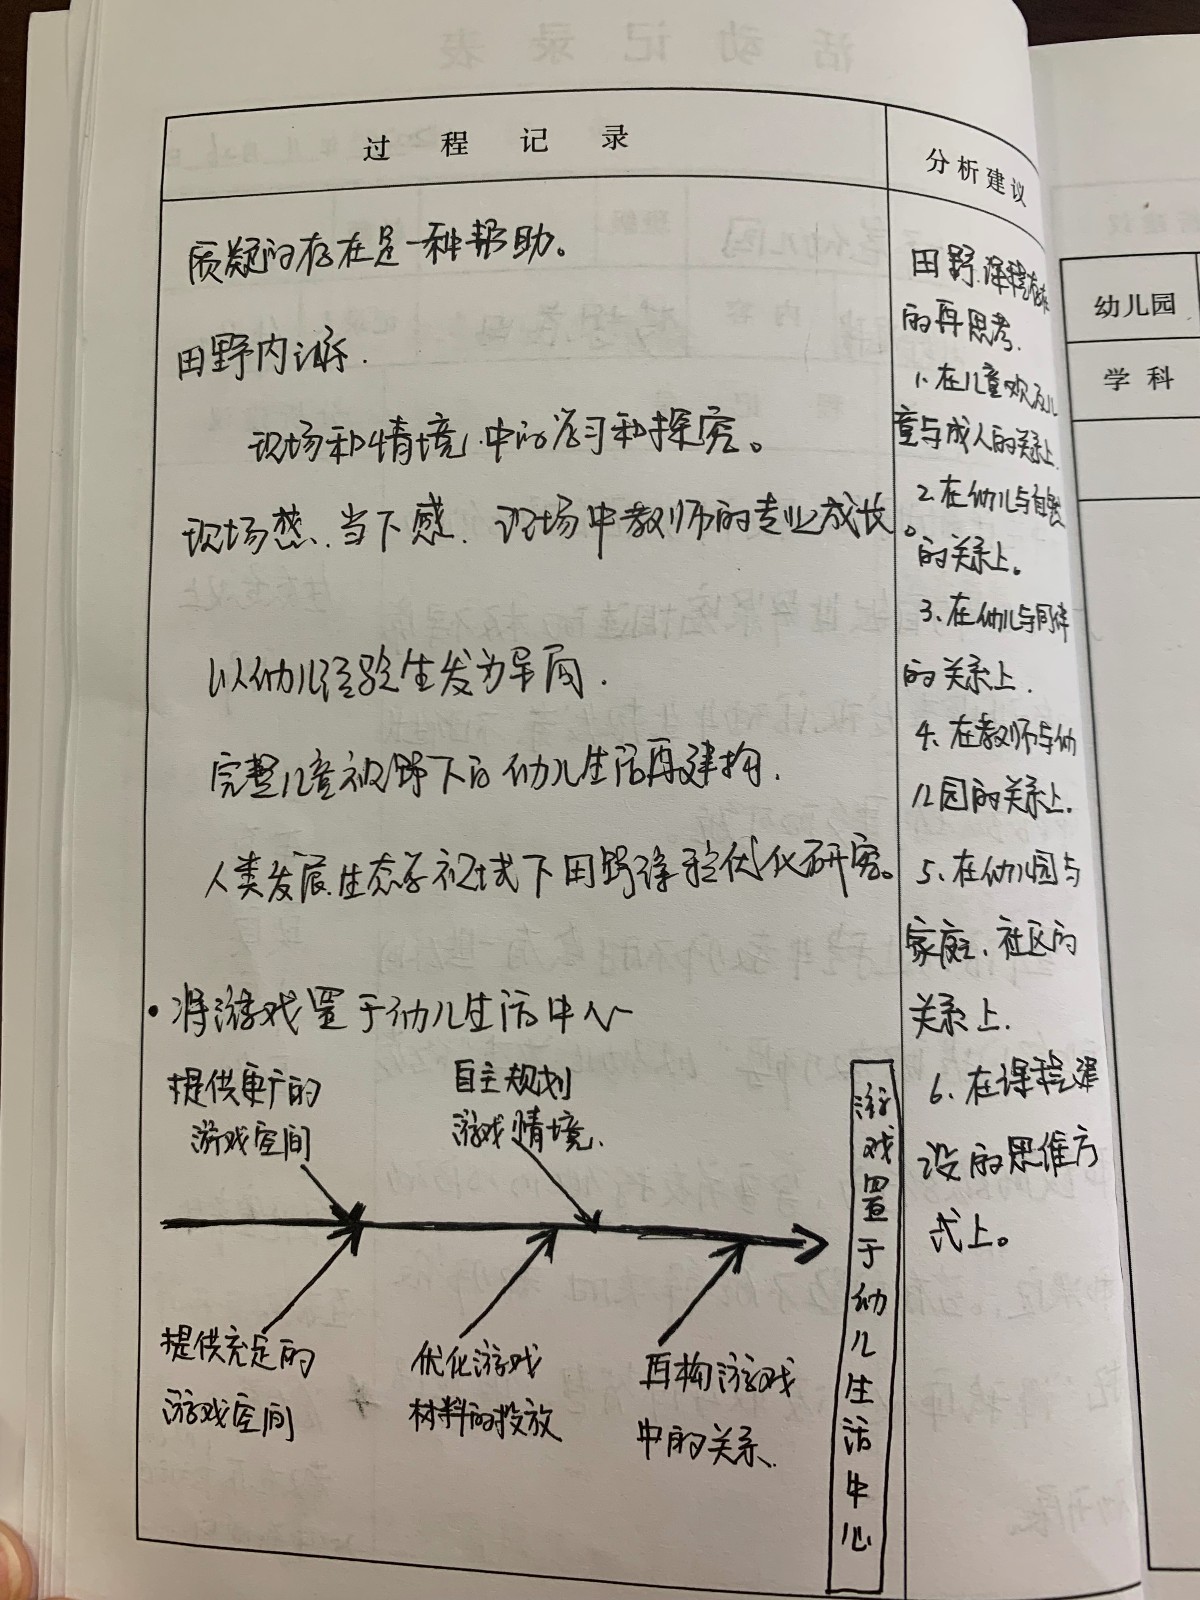 过程记录
质疑的存在是一种帮助。
田野内诉.
现场和情境中的学习和探究。
现场感、当下感、现场中教师的专业成长。
以幼儿经验生发为导向.
完整儿童视野下的幼儿生活再建构.
人类发展生态学视域下田野课程优化研究。
·将游戏置于幼儿生活中心
提供更广的
游戏空间
自主规划
游戏情境、
提供充足的
游戏空间
优化游戏
材料的投放
再构游戏
中的关系、
游戏置于幼儿生活中心
分析建议
田野课程
的再思考.
1、在儿童观及儿
童与成人的关系上.
2、在幼儿与自然
的关系上。
3、在幼儿与同伴
的关系上.
4、在教师与幼
儿园的关系上.
5、在幼儿园与
家庭、社区的
关系上.
6、在课程建
设的思维方
式上。
幼儿园
学科